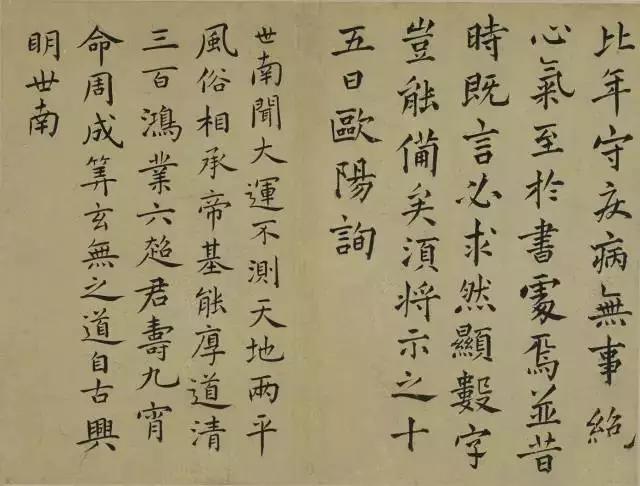 比年守疾病無事絶
心氣至於書處焉並昔
時既言必求然顯數字
豈能備矣須將示之十
五日歐陽詢
世南聞大運不測天地兩平
風俗相承帝基能厚道清
三百鴻業六超君壽九宵
命周成筭玄無之道自古興
明世南